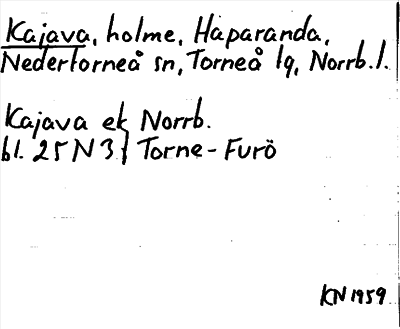 Kajava, holme, Haparanda,
Nedertorneå sn, Torneå lg, Norrb. l.
Kajava ek Norrb.
bl. 25 N 3 } Torne-Furö
KN 1959